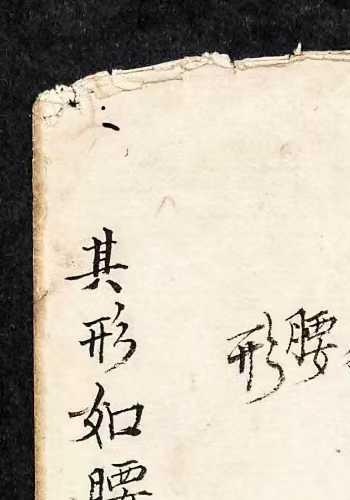 腰
形
其形如腰